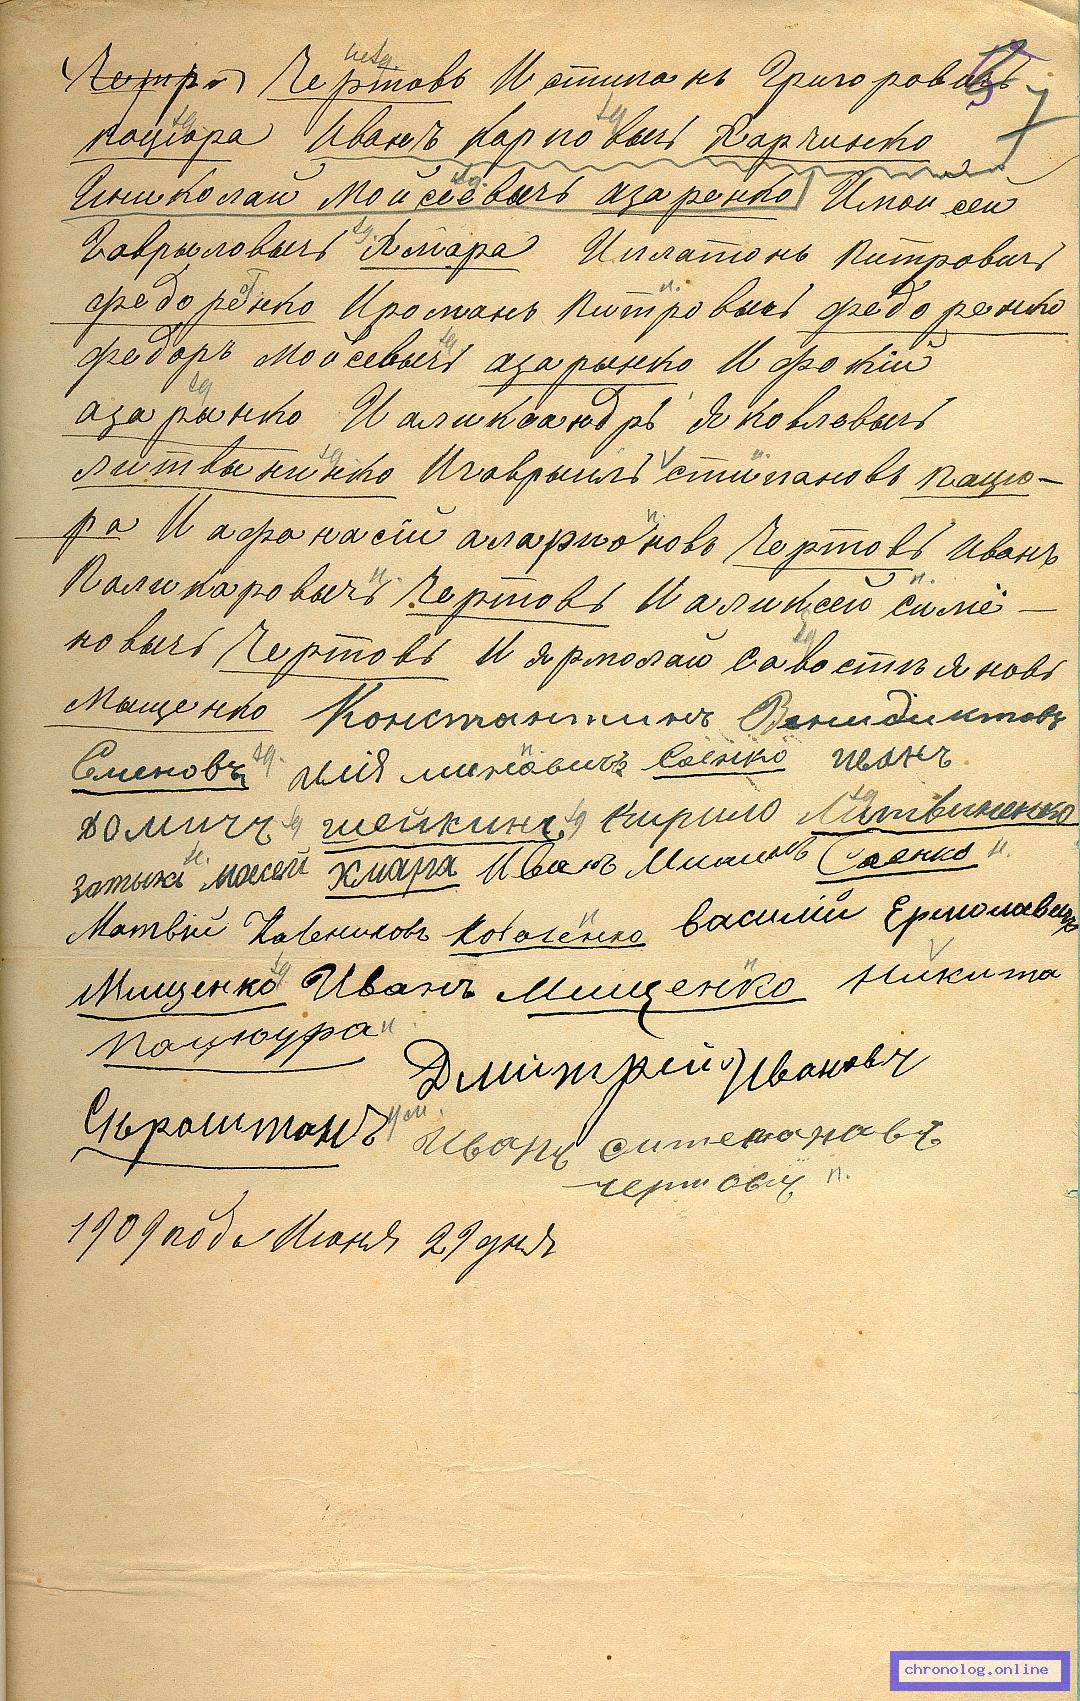 Чертовъ И стипанъ Григоровичъ 7
пацюра Иванъ Карповычъ Харчинко
Иниколай Мойсеевычъ азаренко Имоисей
Гаврыловычъ Хмара Иплатонъ Питровичъ
федоренко Ироманъ Питровычъ федоренко
федоръ Мойсевычъ азарынко И фокій
азарынко И аликсандръ Яковлевычъ
литвининко Игаврыилъ стипановъ пацю-
ра И афанасій аларионовъ Чертовъ Иванъ
Паликаровычъ Чертовъ И аликсей симе-
новычъ Чертовъ И ярмолай Савостьяновъ
Мыщенко Константинъ Венидиктовъ
Семеновъ Саенко Иванъ
шейкинъ Кирило Литвиненко
Хмара Иванъ Саенко
Матвій Коваленко Василій Ермолавичъ
Мищенко Иванъ Мищенко Никита
Пацюура
Дмитрей Ивановъ
Сыроштанъ
Иванъ
чертовъ
1909 года Июня 29 дня
chronolog.online